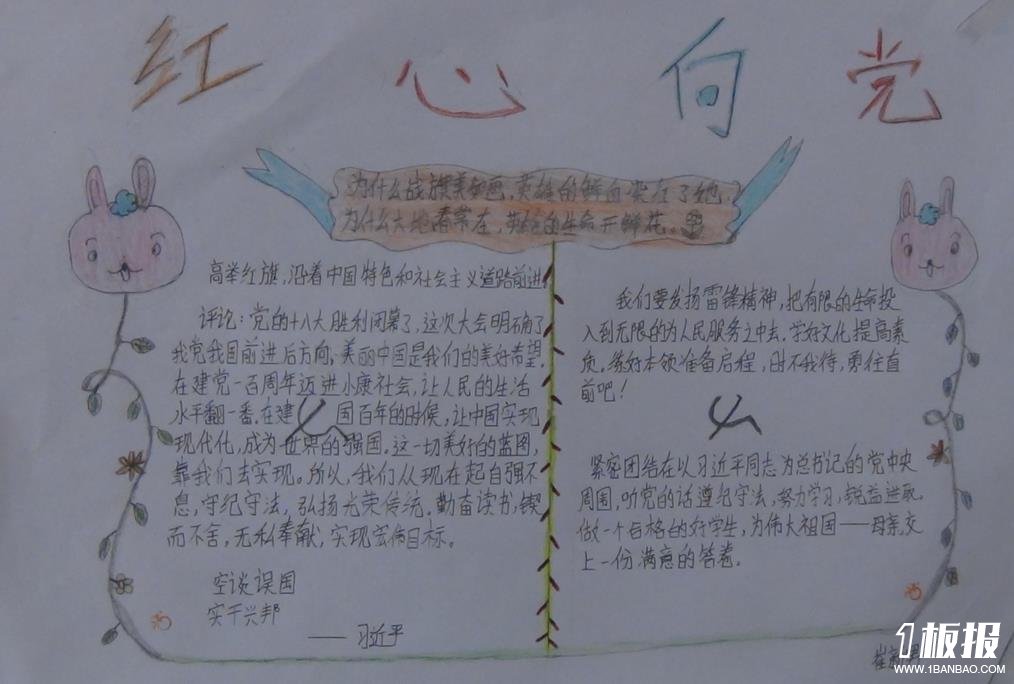 红心向党
为什么战旗美如画,英雄的鲜血染红了她,
为什么大地春常在,英雄的生命开鲜花。
高举红旗,沿着中国特色和社会主义道路前进
评论:党的十八大胜利闭幕了,这次大会明确了
我党我国前进后方向,美丽中国是我们的美好希望。
在建党一百周年迈进小康社会,让人民的生活
水平翻一番。在建国百年的时候,让中国实现
现代化,成为世界的强国。这一切美好的蓝图,
靠我们去实现。所以,我们从现在起自强不
息,守纪守法,弘扬光荣传统。勤奋读书,锲
而不舍,无私奉献,实现宏伟目标。
空谈误国
实干兴邦
——习近平
我们要发扬雷锋精神,把有限的生命投
入到无限的为人民服务之中去。学好文化,提高素
质,练好本领准备启程,时不我待,勇往直
前吧!
紧密团结在以习近平同志为总书记的党中央
周围,听党的话遵纪守法,努力学习,锐益进取,
做一个合格的好学生,为伟大祖国——母亲交
上一份满意的答卷。
崔
1板报
WWW.1BANBAO.COM